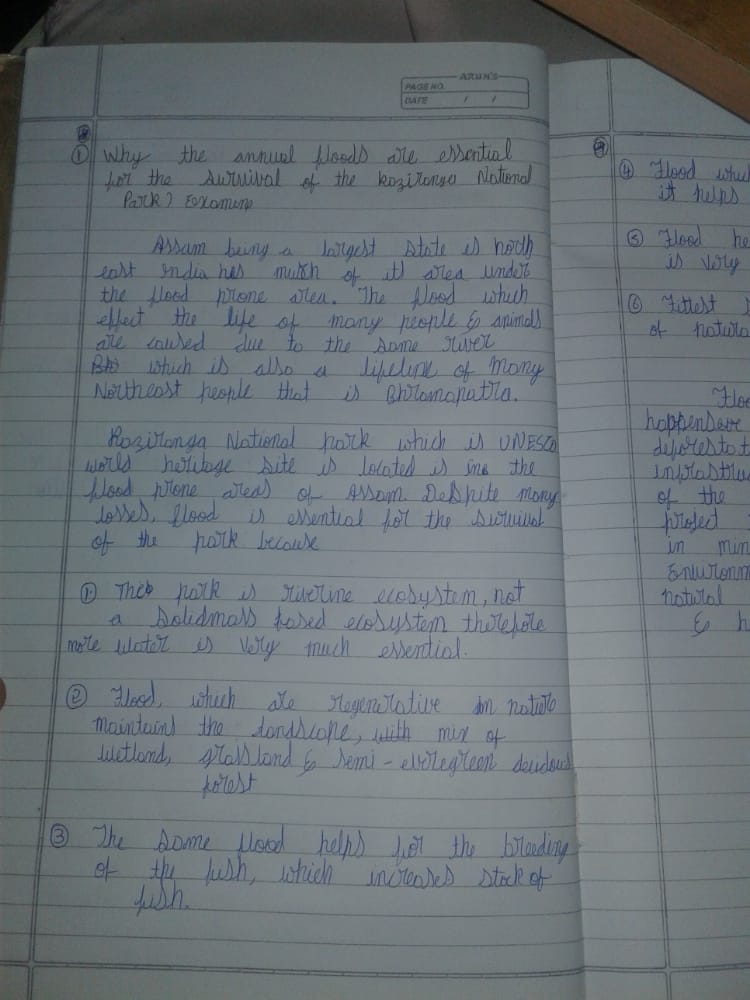 ARUN'S
PAGE NO.
DATE / /
① Why the annual floods are essential
for the survival of the Kaziranga National
Park? Examine
Assam being a largest state is north
east India has much of it area under
the flood prone area. The flood which
effect the life of many people & animals
are caused due to the same river
which is also a lifeline of many
Northeast people that is Bhramapatra.
Kaziranga National park which is UNESCO
world heritage site is located is in the
flood prone areas of Assam. Despite many
losses, flood is essential for the survival
of the park because
① park is riverine ecosystem, not
a Solidmass based ecosystem therefore
more water is very much essential.
② Flood, which are regenerative in nature
maintains the landscape, with mix of
wetland, grassland & semi-evergreen deudous
forest
③ The same flood helps for the breeding
of the fish, which increases stock of
fish.
④ Flood whic
it helps
⑤ Flood he
is very
⑥ Fittest
of natura
Floo
happens
deforestat
infrastru
of the
project
in min
Environm
natural
& h